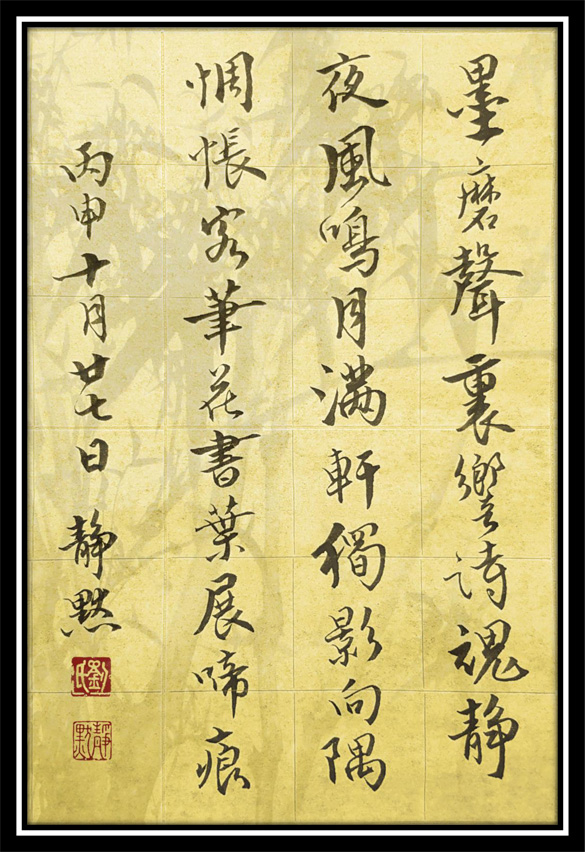 墨磨聲裏響詩魂静
夜風鳴月滿軒獨影向隅
惆悵客筆花書葉展啼痕
丙申十月廿七日 静默
劉氏
静默